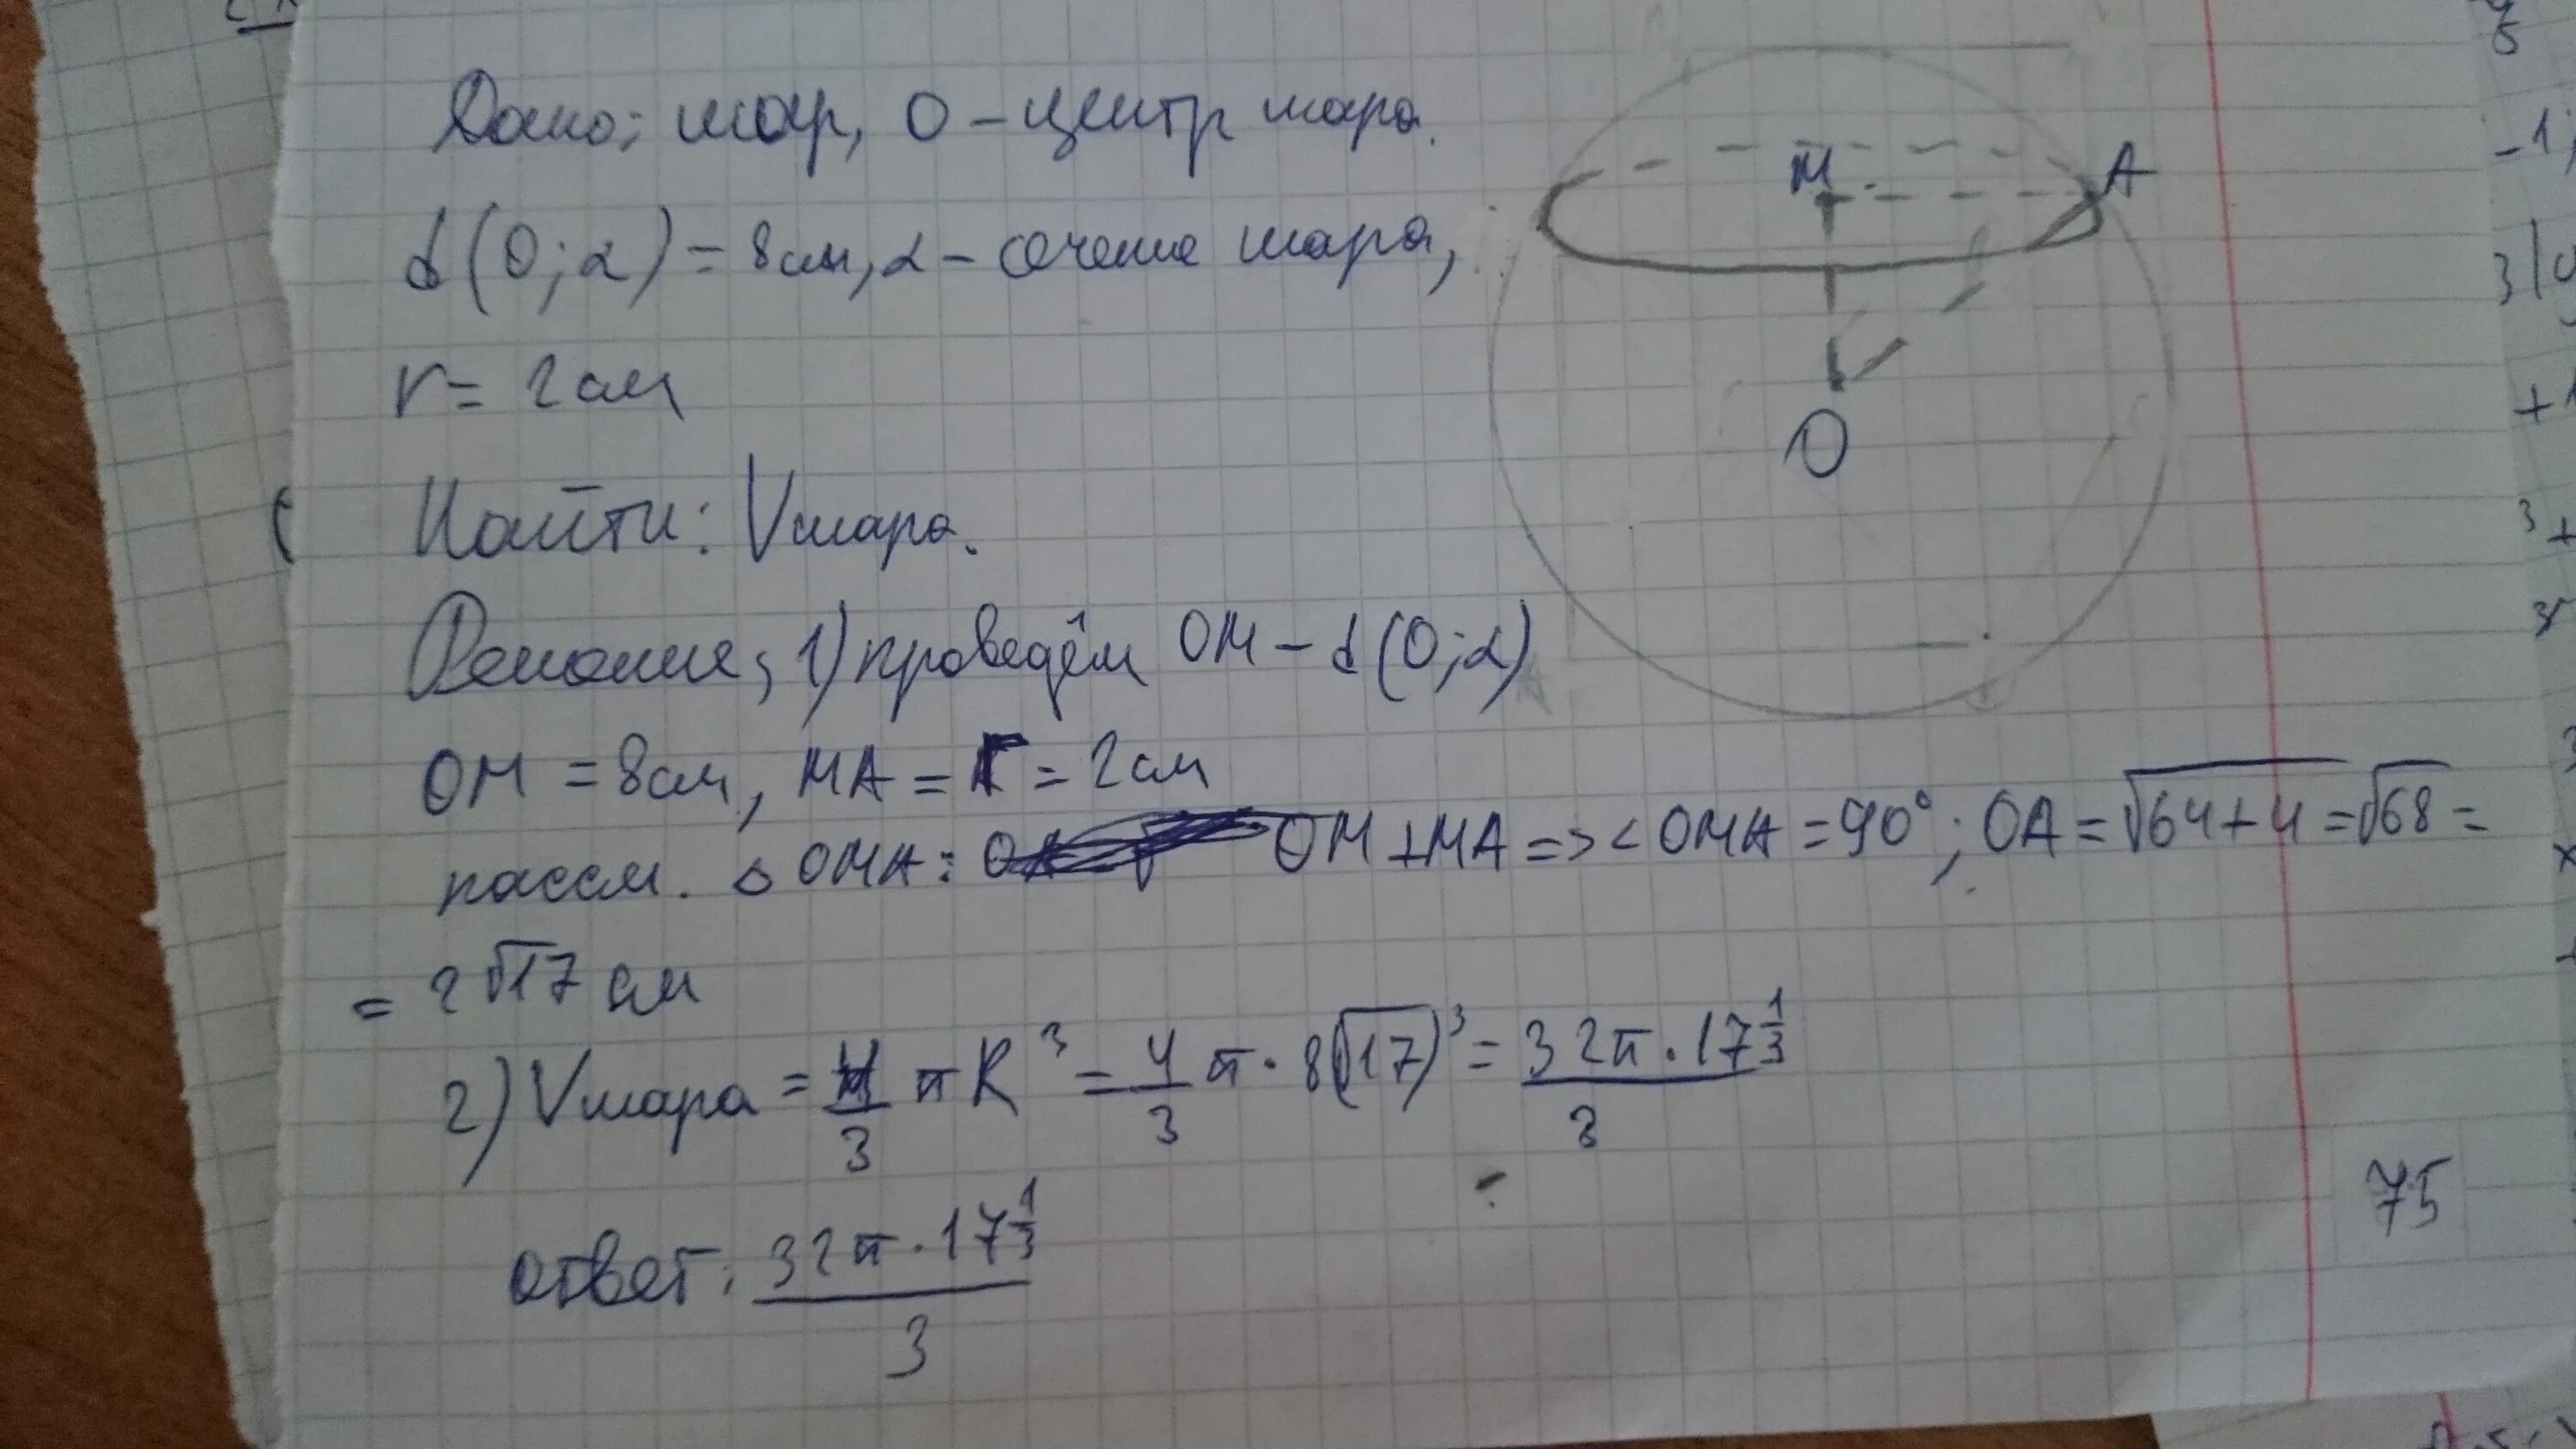 Дано: шар, O – центр шара.
d(O; α) = 8 см, α – сечение шара,
r = 2 см
Найти: V шара.
Решение; 1) проведём OM – d(O; α)
OM = 8 см, MA = r = 2 см
рассм. △ OMA: OM ⊥ MA => < OMA = 90°; OA = √64+4 = √68 =
= 2√17 см
2) V шара = 4/3 π R³ = 4/3 π · 8(√17)³ = 32π · 17^(1/3) / 3
ответ: 32π · 17^(1/3) / 3
M
A
O
75